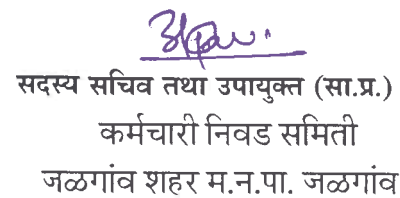 सदस्य सचिव तथा उपायुक्त (सा.प्र.)
कर्मचारी निवड समिती
जळगांव शहर म.न.पा. जळगांव